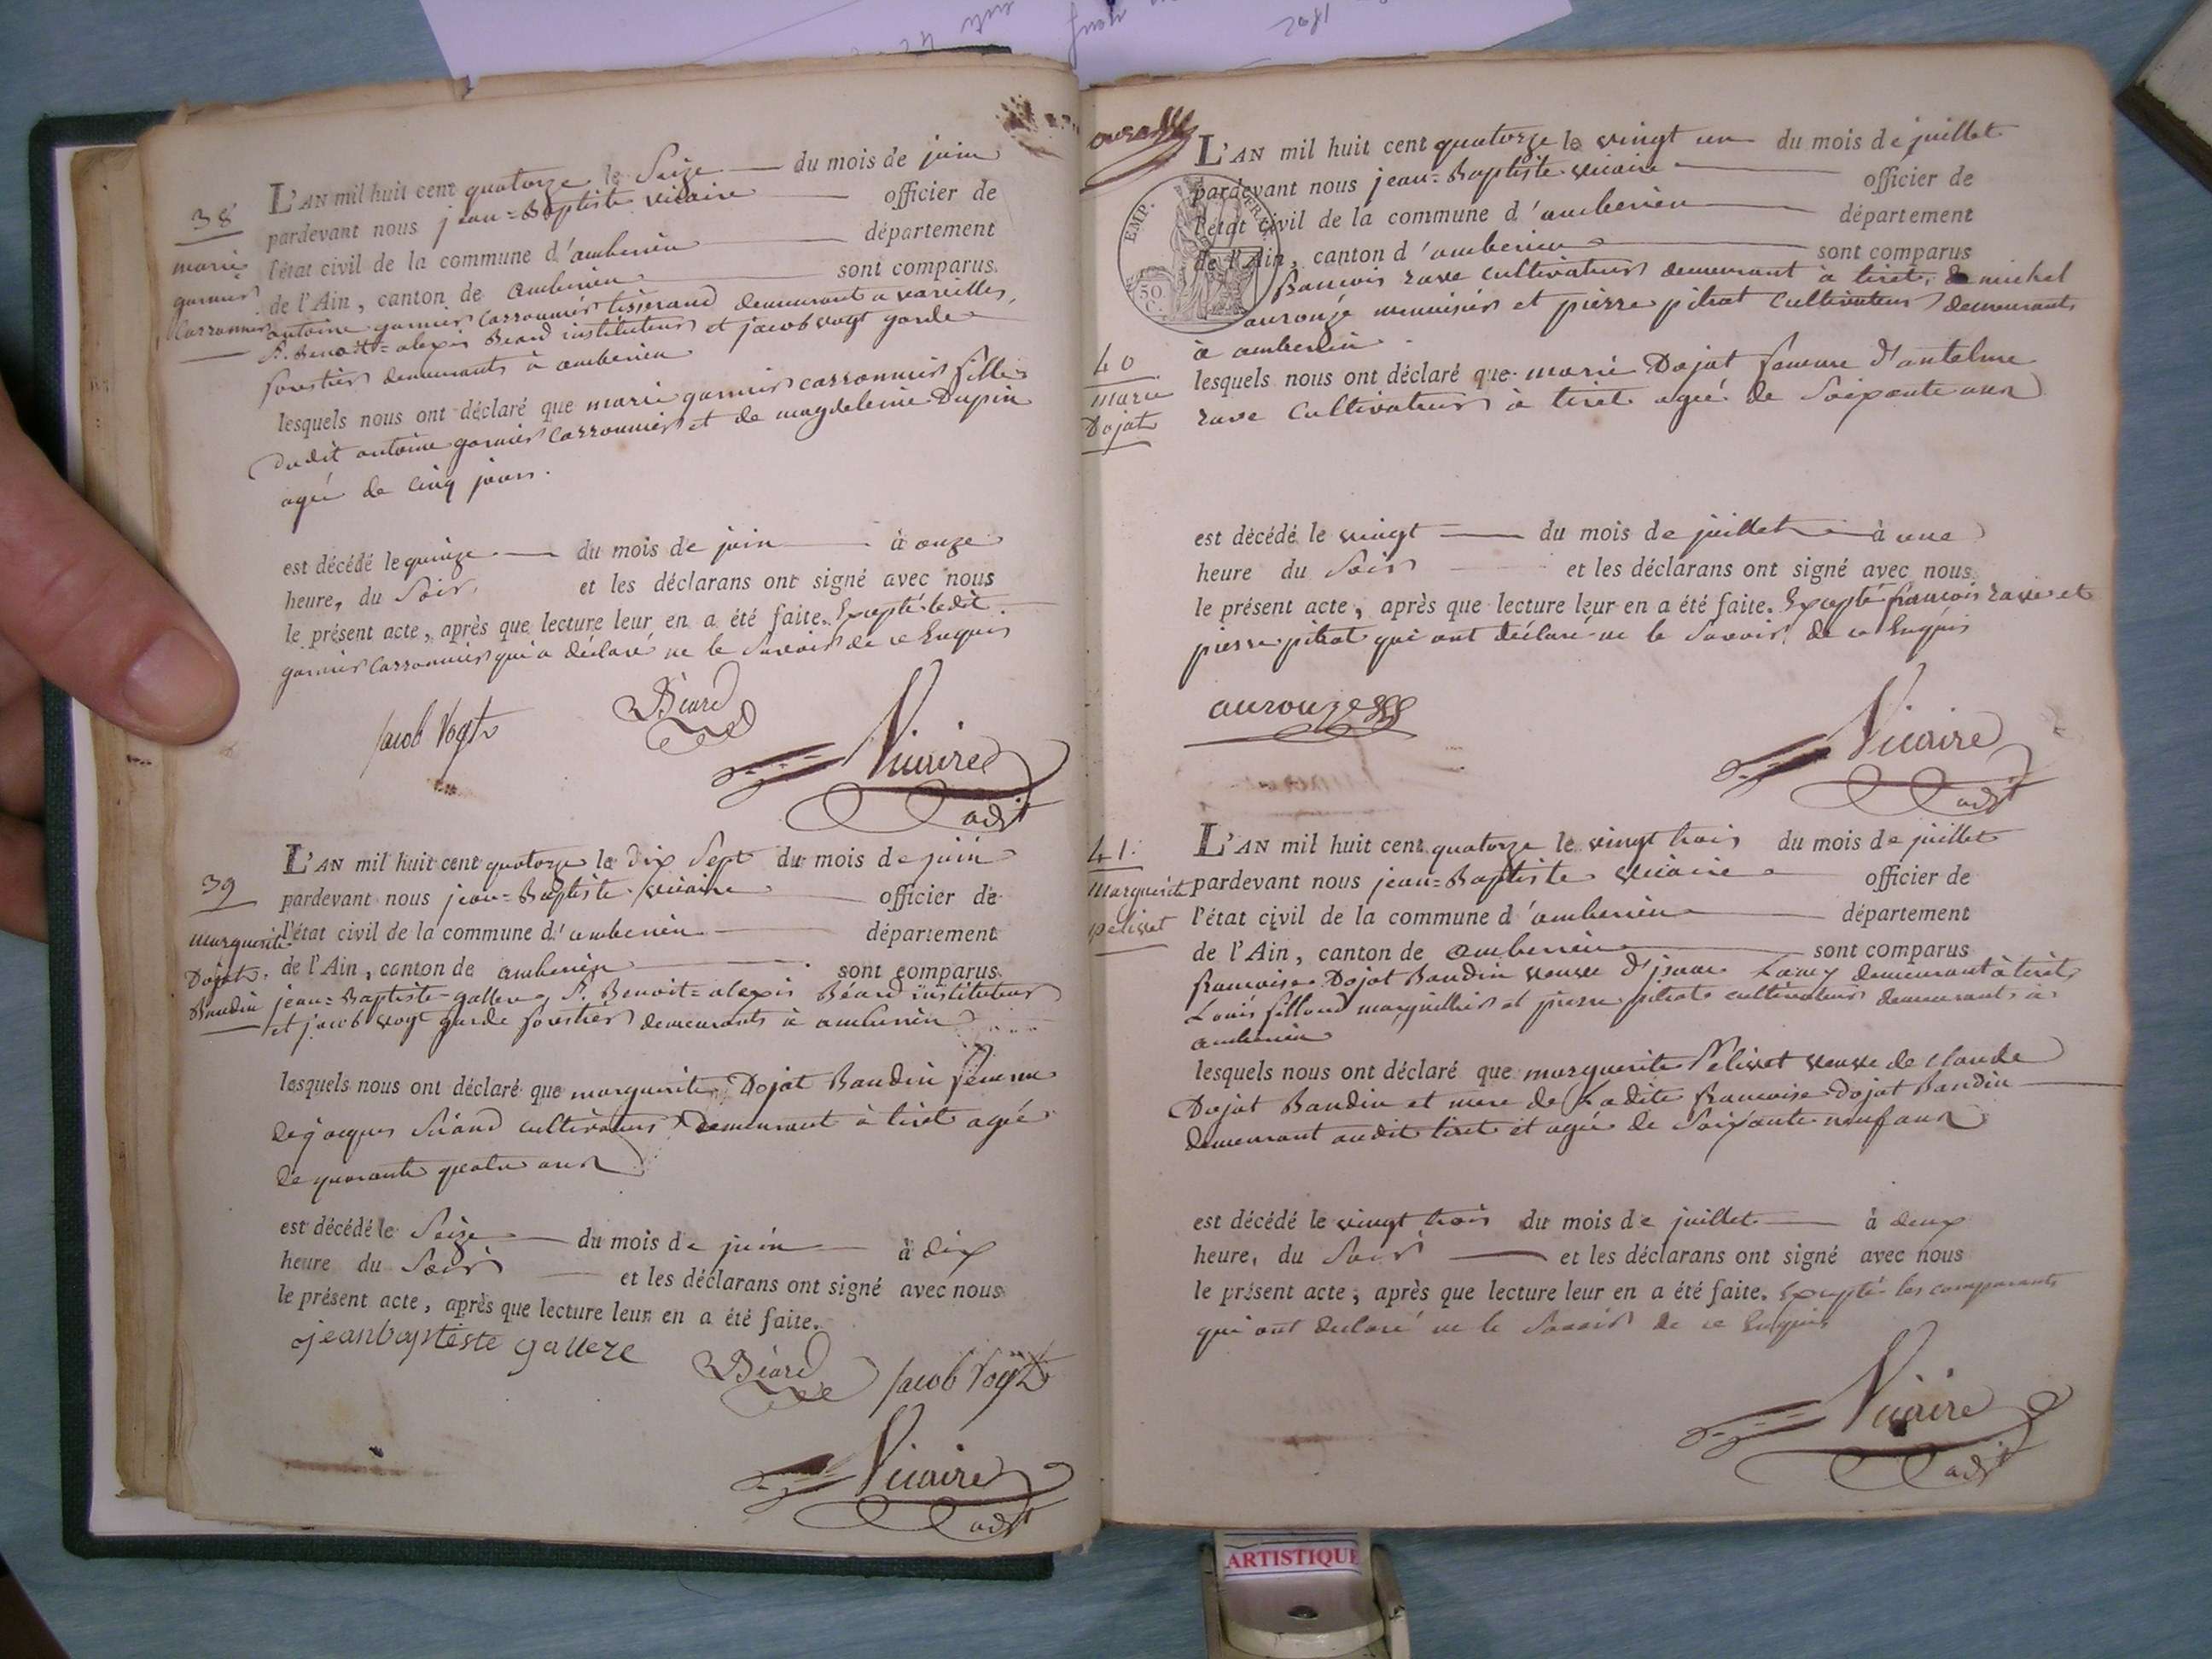 38
marie
garnier
Carronnier
L'AN mil huit cent quatorze le Seize du mois de juin
pardevant nous jean=Baptiste vicaire officier de
l'état civil de la commune d'amberieu département
de l'Ain, canton de amberieu sont comparus
antoine garnier Carronnier tisserand demeurant a vareilles,
Sr. Benoit=alexis Beard instituteur et jacob vogt garde
forestier demeurants à amberieu
lesquels nous ont déclaré que marie garnier carronnier fille
dudit antoine garnier carronnier et de magdeleine Dupin
agée de cinq jours.
est décédé le quinze du mois de juin à onze
heure, du Soir, et les déclarans ont signé avec nous
le présent acte, après que lecture leur en a été faite. Excepté ledit
garnier carronnier qui a déclaré ne le Savoir de ce Enquis
Jacob Vogt Béard
Vicaire
adjt
39
marguerite
Dojat
Baudin
L'AN mil huit cent quatorze le dix Sept du mois de juin
pardevant nous jean=Baptiste vicaire officier de
l'état civil de la commune d'amberieu département
de l'Ain, canton de amberieu sont comparus
jean=Baptiste gallere, Sr. Benoit=alexis Béard instituteur
et jacob vogt garde forestier demeurants à amberieu
lesquels nous ont déclaré que marguerite Dojat Baudin femme
de jacques cultivateur demeurant à tiret agée
de quarante quatre ans
est décédé le Seize du mois de juin à dix
heure du Soir et les déclarans ont signé avec nous
le présent acte, après que lecture leur en a été faite.
jeanbaptiste gallere
Béard Jacob Vogt
Vicaire
adjt
EMP. FRAN
50 C.
40
marie
Dojat
L'AN mil huit cent quatorze le vingt un du mois de juillet
pardevant nous jean=Baptiste vicaire officier de
l'état civil de la commune d'amberieu département
de l'Ain, canton d'amberieu sont comparus
francois rave cultivateur demeurant à tiret, michel
aurouze menuisier et pierre pitrat cultivateur demeurants
à amberieu
lesquels nous ont déclaré que marie Dojat femme d'antelme
rave Cultivateur à tiret agée de Soixante ans
est décédé le vingt du mois de juillet à une
heure du Soir et les déclarans ont signé avec nous
le présent acte, après que lecture leur en a été faite. Excepté francois rave et
pierre pitrat qui ont déclaré ne le Savoir de ce Enquis
aurouze
Vicaire
adjt
41.
Marguerite
pelisset
L'AN mil huit cent quatorze le vingt trois du mois de juillet
pardevant nous jean=Baptiste vicaire officier de
l'état civil de la commune d'amberieu département
de l'Ain, canton de amberieu sont comparus
francoise Dojat Baudin veuve d' demeurant à tiret,
Louis marguillier et pierre pitrat cultivateur demeurants à
amberieu
lesquels nous ont déclaré que marguerite Pelisset veuve de claude
Dojat Baudin et mere de Ladite francoise Dojat Baudin
demeurant audit tiret et agée de Soixante neuf ans
est décédé le vingt trois du mois de juillet à deux
heure, du Soir et les déclarans ont signé avec nous
le présent acte, après que lecture leur en a été faite. Excepté les comparants
qui ont declaré ne le Savoir de ce Enquis
Vicaire
adjt
ARTISTIQUE